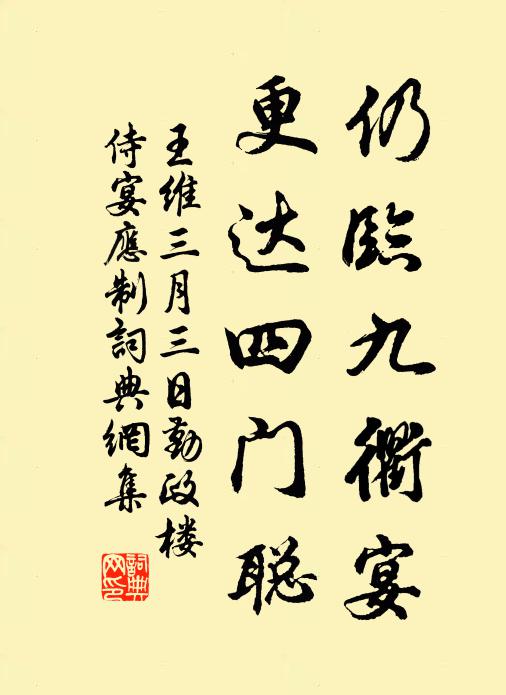 仍臨九衢宴
更达四门聪
王维三月三日勤政楼
侍宴應制詞典網集
詞典
网印